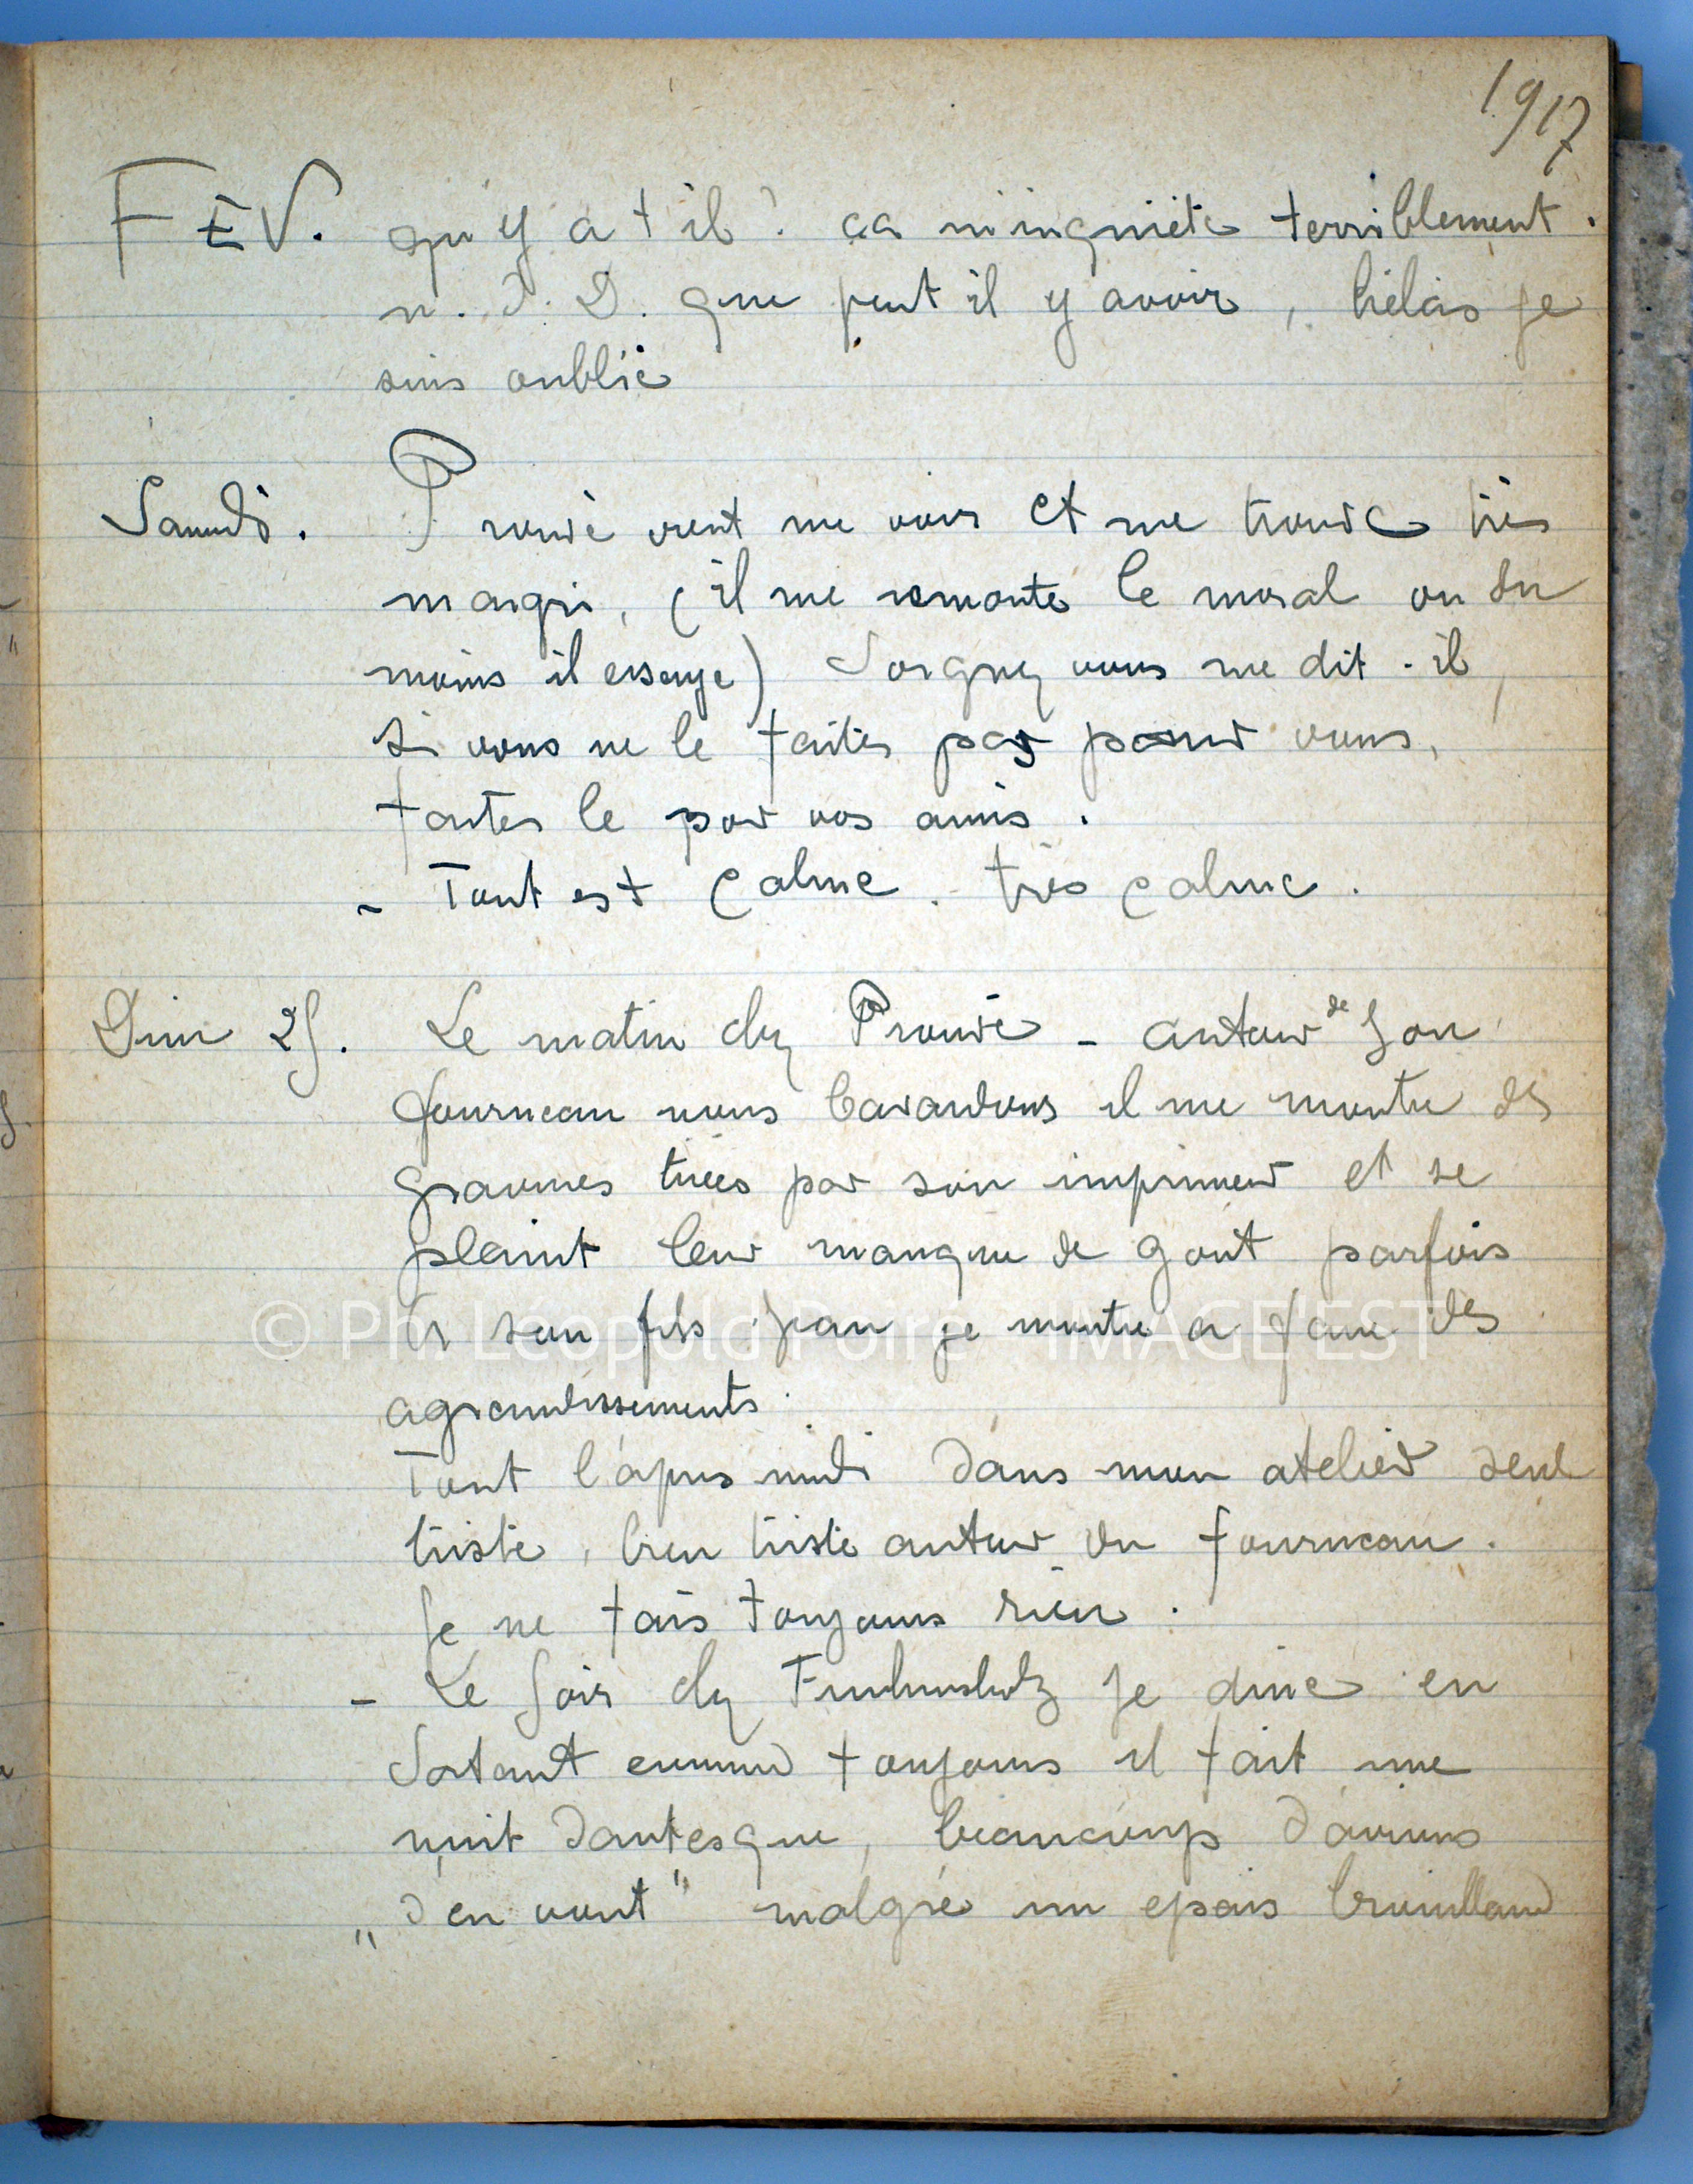 1917
FEV. qu'y a t il ? ca m'inquiète terriblement.
n. d. D. que peut il y avoir, hélas je
suis oublié
Samedi. Prouvé vient me voir et me trouve très
maigri, (il me remonte le moral ou du
moins il essaye) Soignez vous me dit-il,
si vous ne le faites pas pour vous,
faites le por vos amis.
- Tout est calme. très calme.
Dim 25. Le matin chez Prouvé - autour de son
fourneau nous bavardons il me montre des
gravures tirées par son imprimeur et se
plaint leur manque de gout parfois
à son fils Jean je montre a faire des
agrandissements.
Tout l'après midi dans mon atelier seul
triste, bien triste autour du fourneau.
Je ne fais toujours rien.
- Le soir chez je dine en
sortant comme toujours il fait une
nuit dantesque, beaucoup d'avions
"d'en vont" malgré un epais brouillard
© Ph. Léopold Poiré - IMAGE'EST